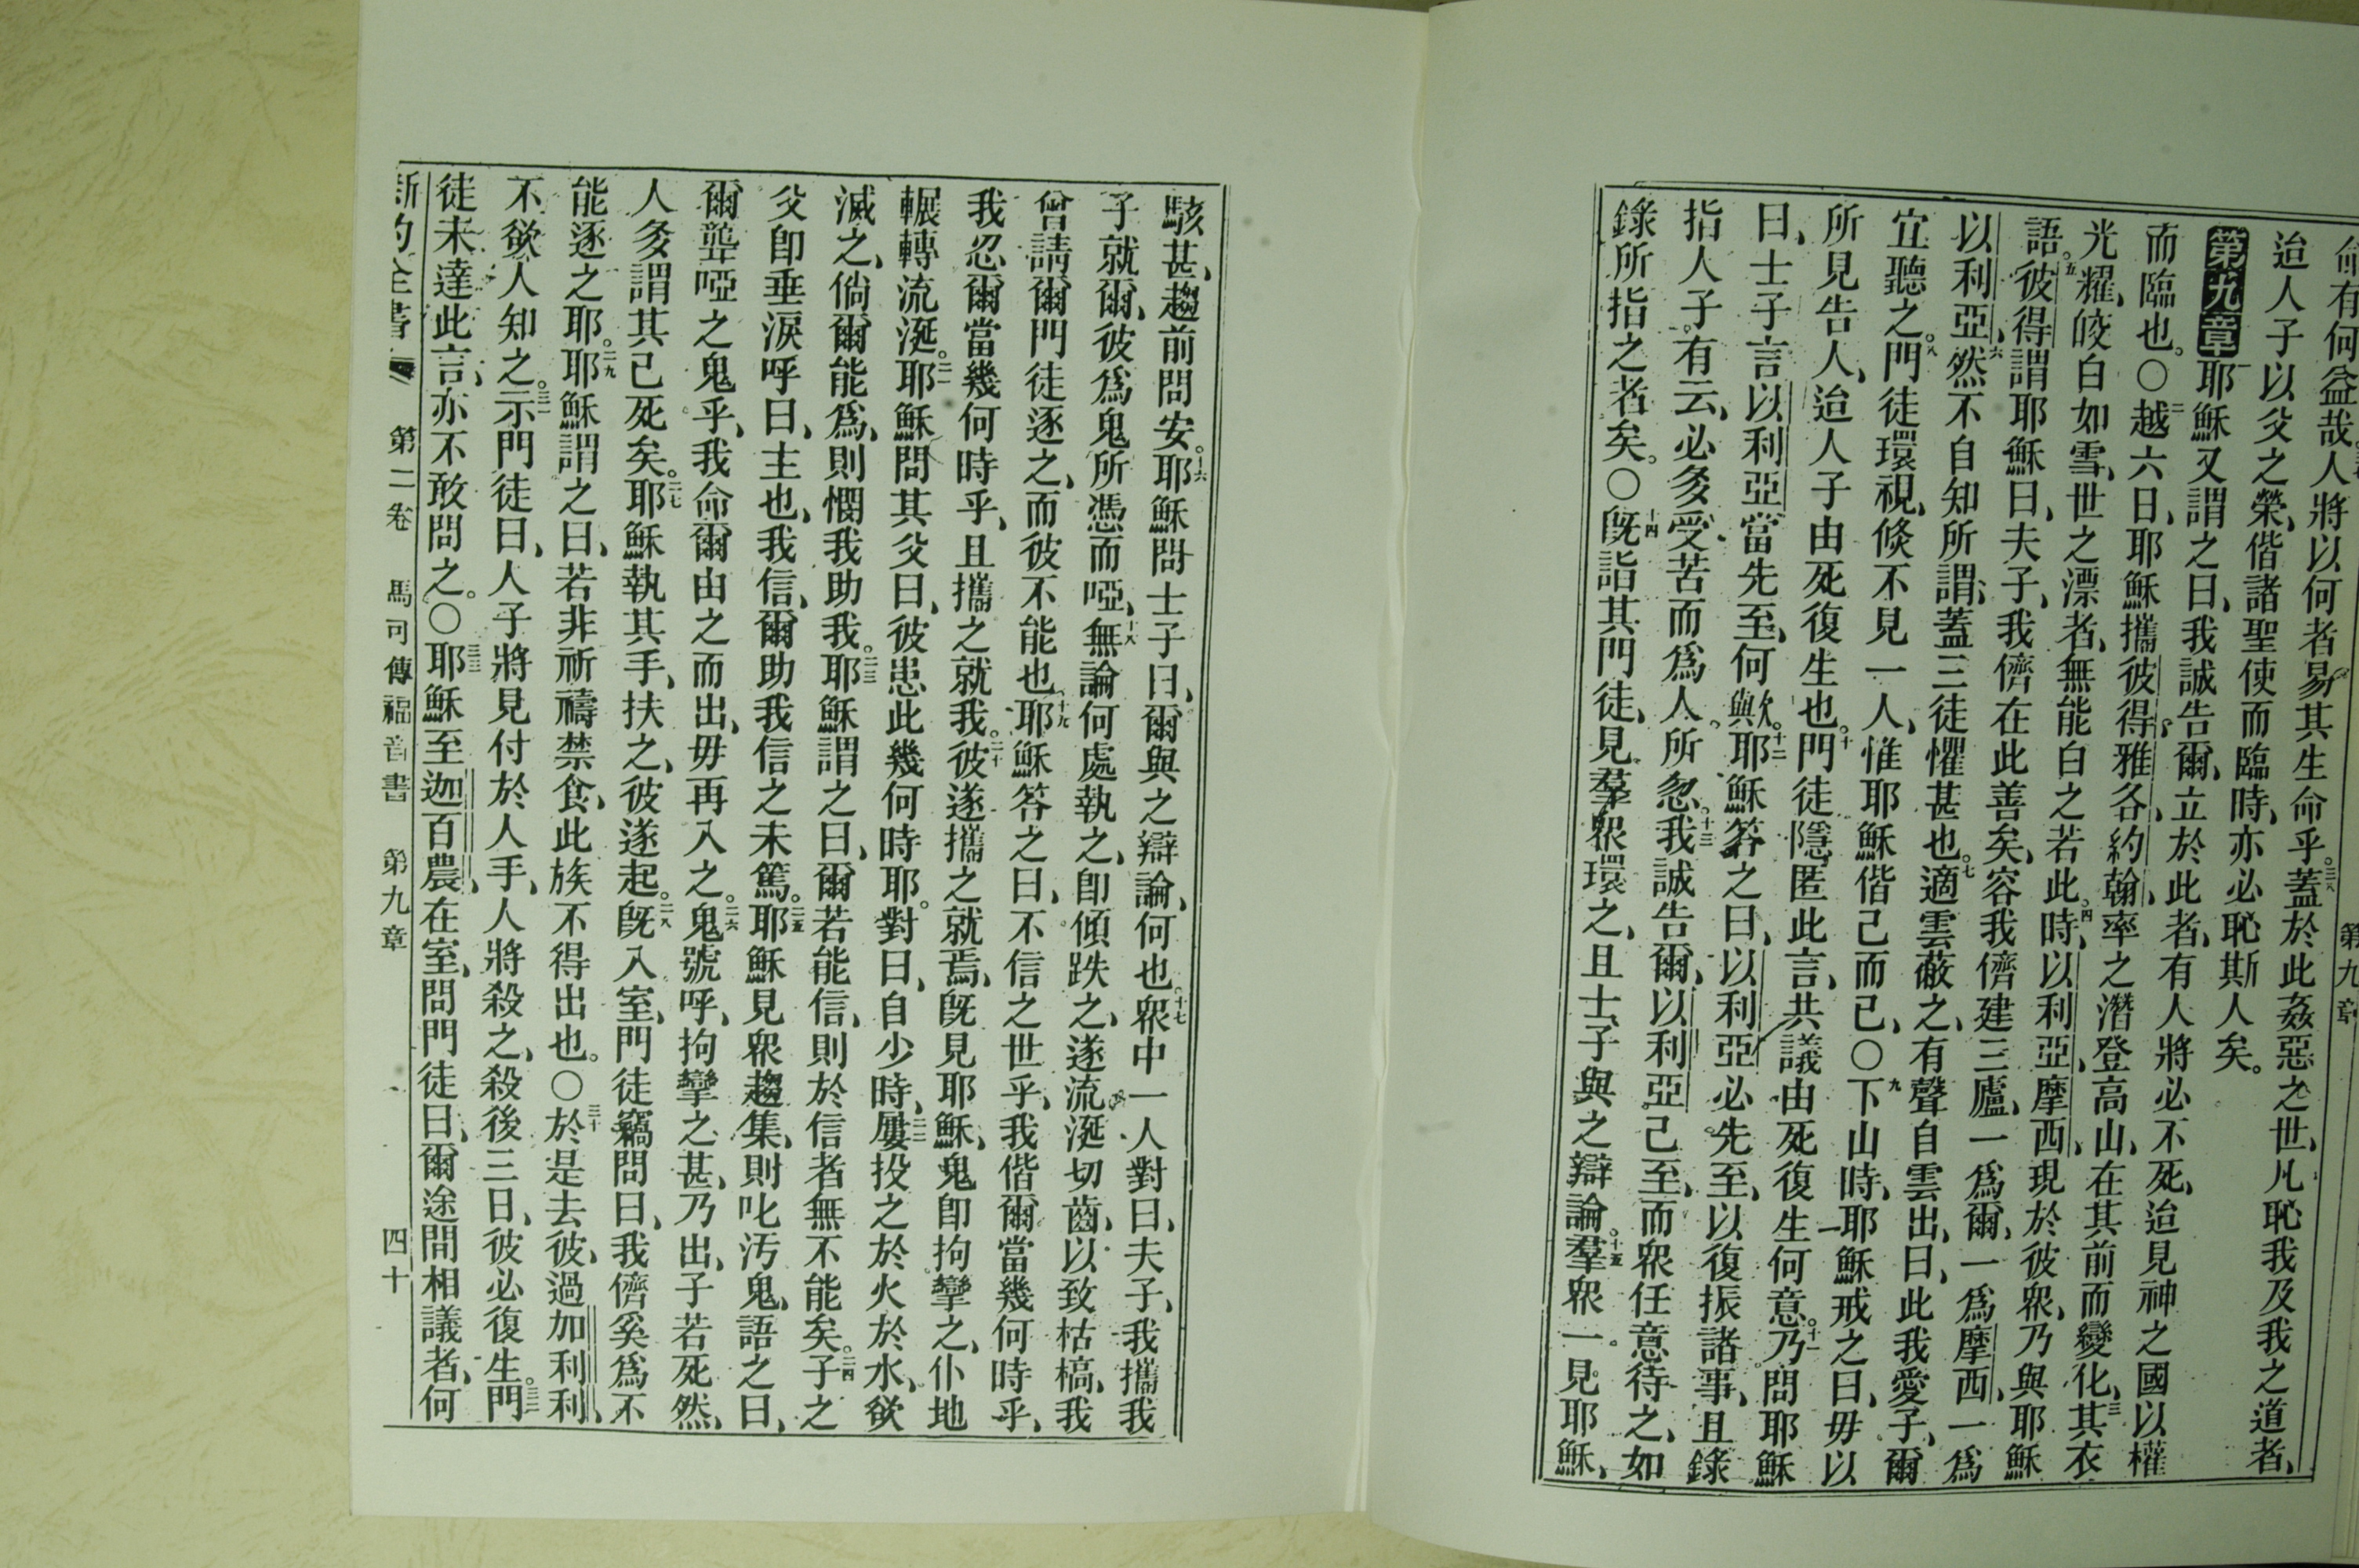 第九章
命有何益哉人將以何者易其生命乎。蓋於此姦惡之世、凡恥我及我之道者、
迨人子以父之榮、偕諸聖使而臨時、亦必恥斯人矣。
第九章一耶穌又謂之曰、我誠告爾、立於此者、有人將必不死、迨見神之國以權
而臨也。〇二越六日、耶穌攜彼得、雅各、約翰、率之潛登高山、在其前而變化、三其衣
光耀、皎白如雪、世之漂者、無能白之若此。四時、以利亞、摩西、現於彼眾、乃與耶穌
語。五彼得謂耶穌曰、夫子、我儕在此善矣、容我儕建三廬、一為爾、一為摩西、一為
以利亞、六然不自知所謂、蓋三徒懼甚也。七適雲蔽之、有聲自雲出、曰、此我愛子、爾
宜聽之。八門徒環視、倐不見一人、惟耶穌偕己而已、〇九下山時、耶穌戒之曰、毋以
所見告人、迨人子由死復生也。十門徒隱匿此言、共議由死復生何意。十一乃問耶穌
曰、士子言以利亞當先至、何歟。十二耶穌答之曰、以利亞必先至、以復振諸事、且錄
指人子。有云、必多受苦而為人所忽。十三我誠告爾、以利亞已至、而眾任意待之、如
錄所指之者矣。〇十四既詣其門徒、見羣眾環之、且士子與之辯論。十五羣眾一見耶穌、
駭甚、趨前問安。十六耶穌問士子曰、爾與之辯論、何也。十七眾中一人對曰、夫子、我攜我
子就爾、彼為鬼所憑而啞、十八無論何處執之、卽傾跌之、遂流涎切齒、以致枯槁、我
曾請爾門徒逐之、而彼不能也。十九耶穌答之曰、不信之世乎、我偕爾當幾何時乎、
我忍爾當幾何時乎、且攜之就我。二十彼遂攜之就焉、既見耶穌、鬼卽拘攣之、仆地
輾轉流涎。二一耶穌問其父曰、彼患此幾何時耶。對曰、自少時、二二屢投之於火於水、欲
滅之、倘爾能為、則憫我助我。二三耶穌謂之曰、爾若能信、則於信者無不能矣。二四子之
父卽垂淚呼曰、主也、我信、爾助我信之未篤。二五耶穌見眾趨集、則叱汚鬼、語之曰、
爾聾啞之鬼乎、我命爾由之而出、毋再入之。二六鬼號呼、拘攣之甚、乃出、子若死然、
人多謂其已死矣。二七耶穌執其手、扶之、彼遂起。二八既入室、門徒竊問曰、我儕奚為不
能逐之耶。二九耶穌謂之曰、若非祈禱禁食、此族不得出也。〇三十於是去彼、過加利利、
不欲人知之。三一示門徒曰、人子將見付於人手、人將殺之、殺後三日、彼必復生。三二門
徒未達此言、亦不敢問之。〇三三耶穌至迦百農、在室、問門徒曰、爾途間相議者、何
新約全書 第二卷 馬可傳福音書 第九章 四十